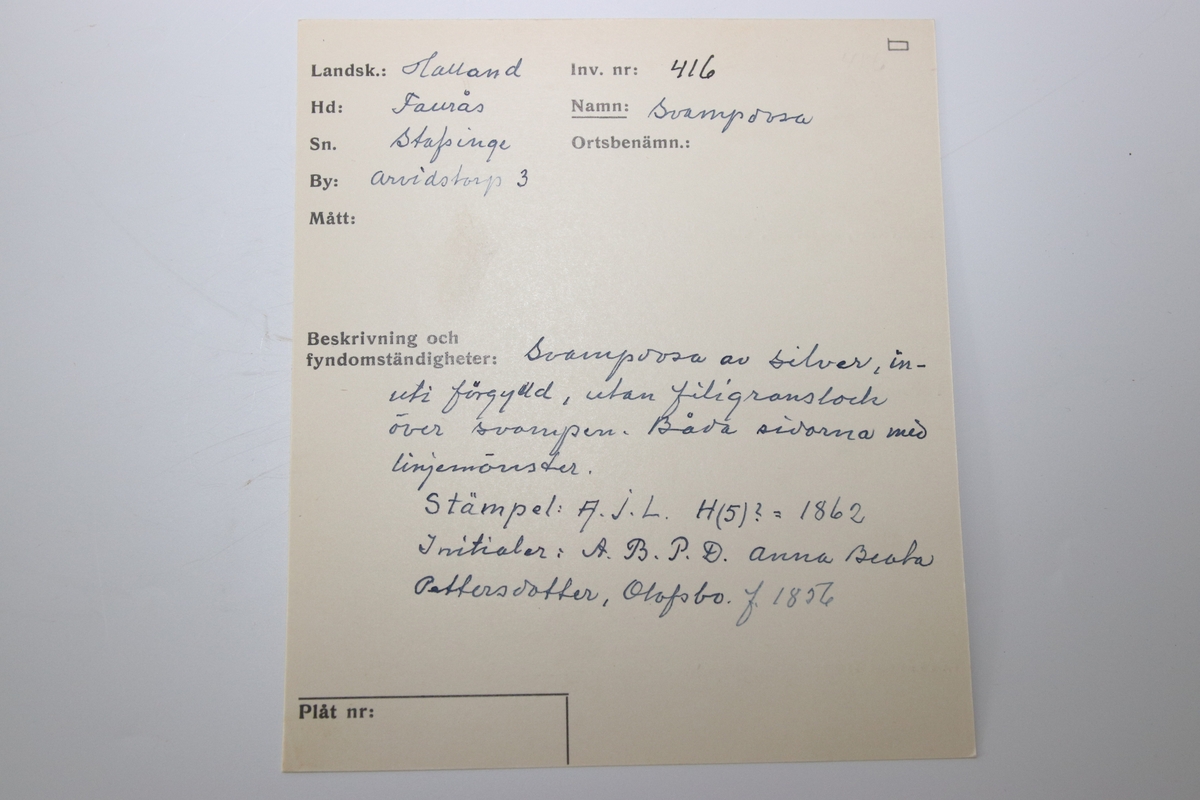 Landsk.: Halland Inv. nr: 416
Hd: Faurås Namn: Svampdosa
Sn. Stafsinge Ortsbenämn.:
By: Arvidstorp 3
Mått:
Beskrivning och
fyndomständigheter: Svampdosa av silver, in-
uti förgylld, utan filigranslock
över svampen. Båda sidorna med
linjemönster.
Stämpel: A.J.L. H(5)? = 1862
Initialer: A.B.P.D. Anna Beata
Pettersdotter, Olofsbo. f. 1856
Plåt nr: